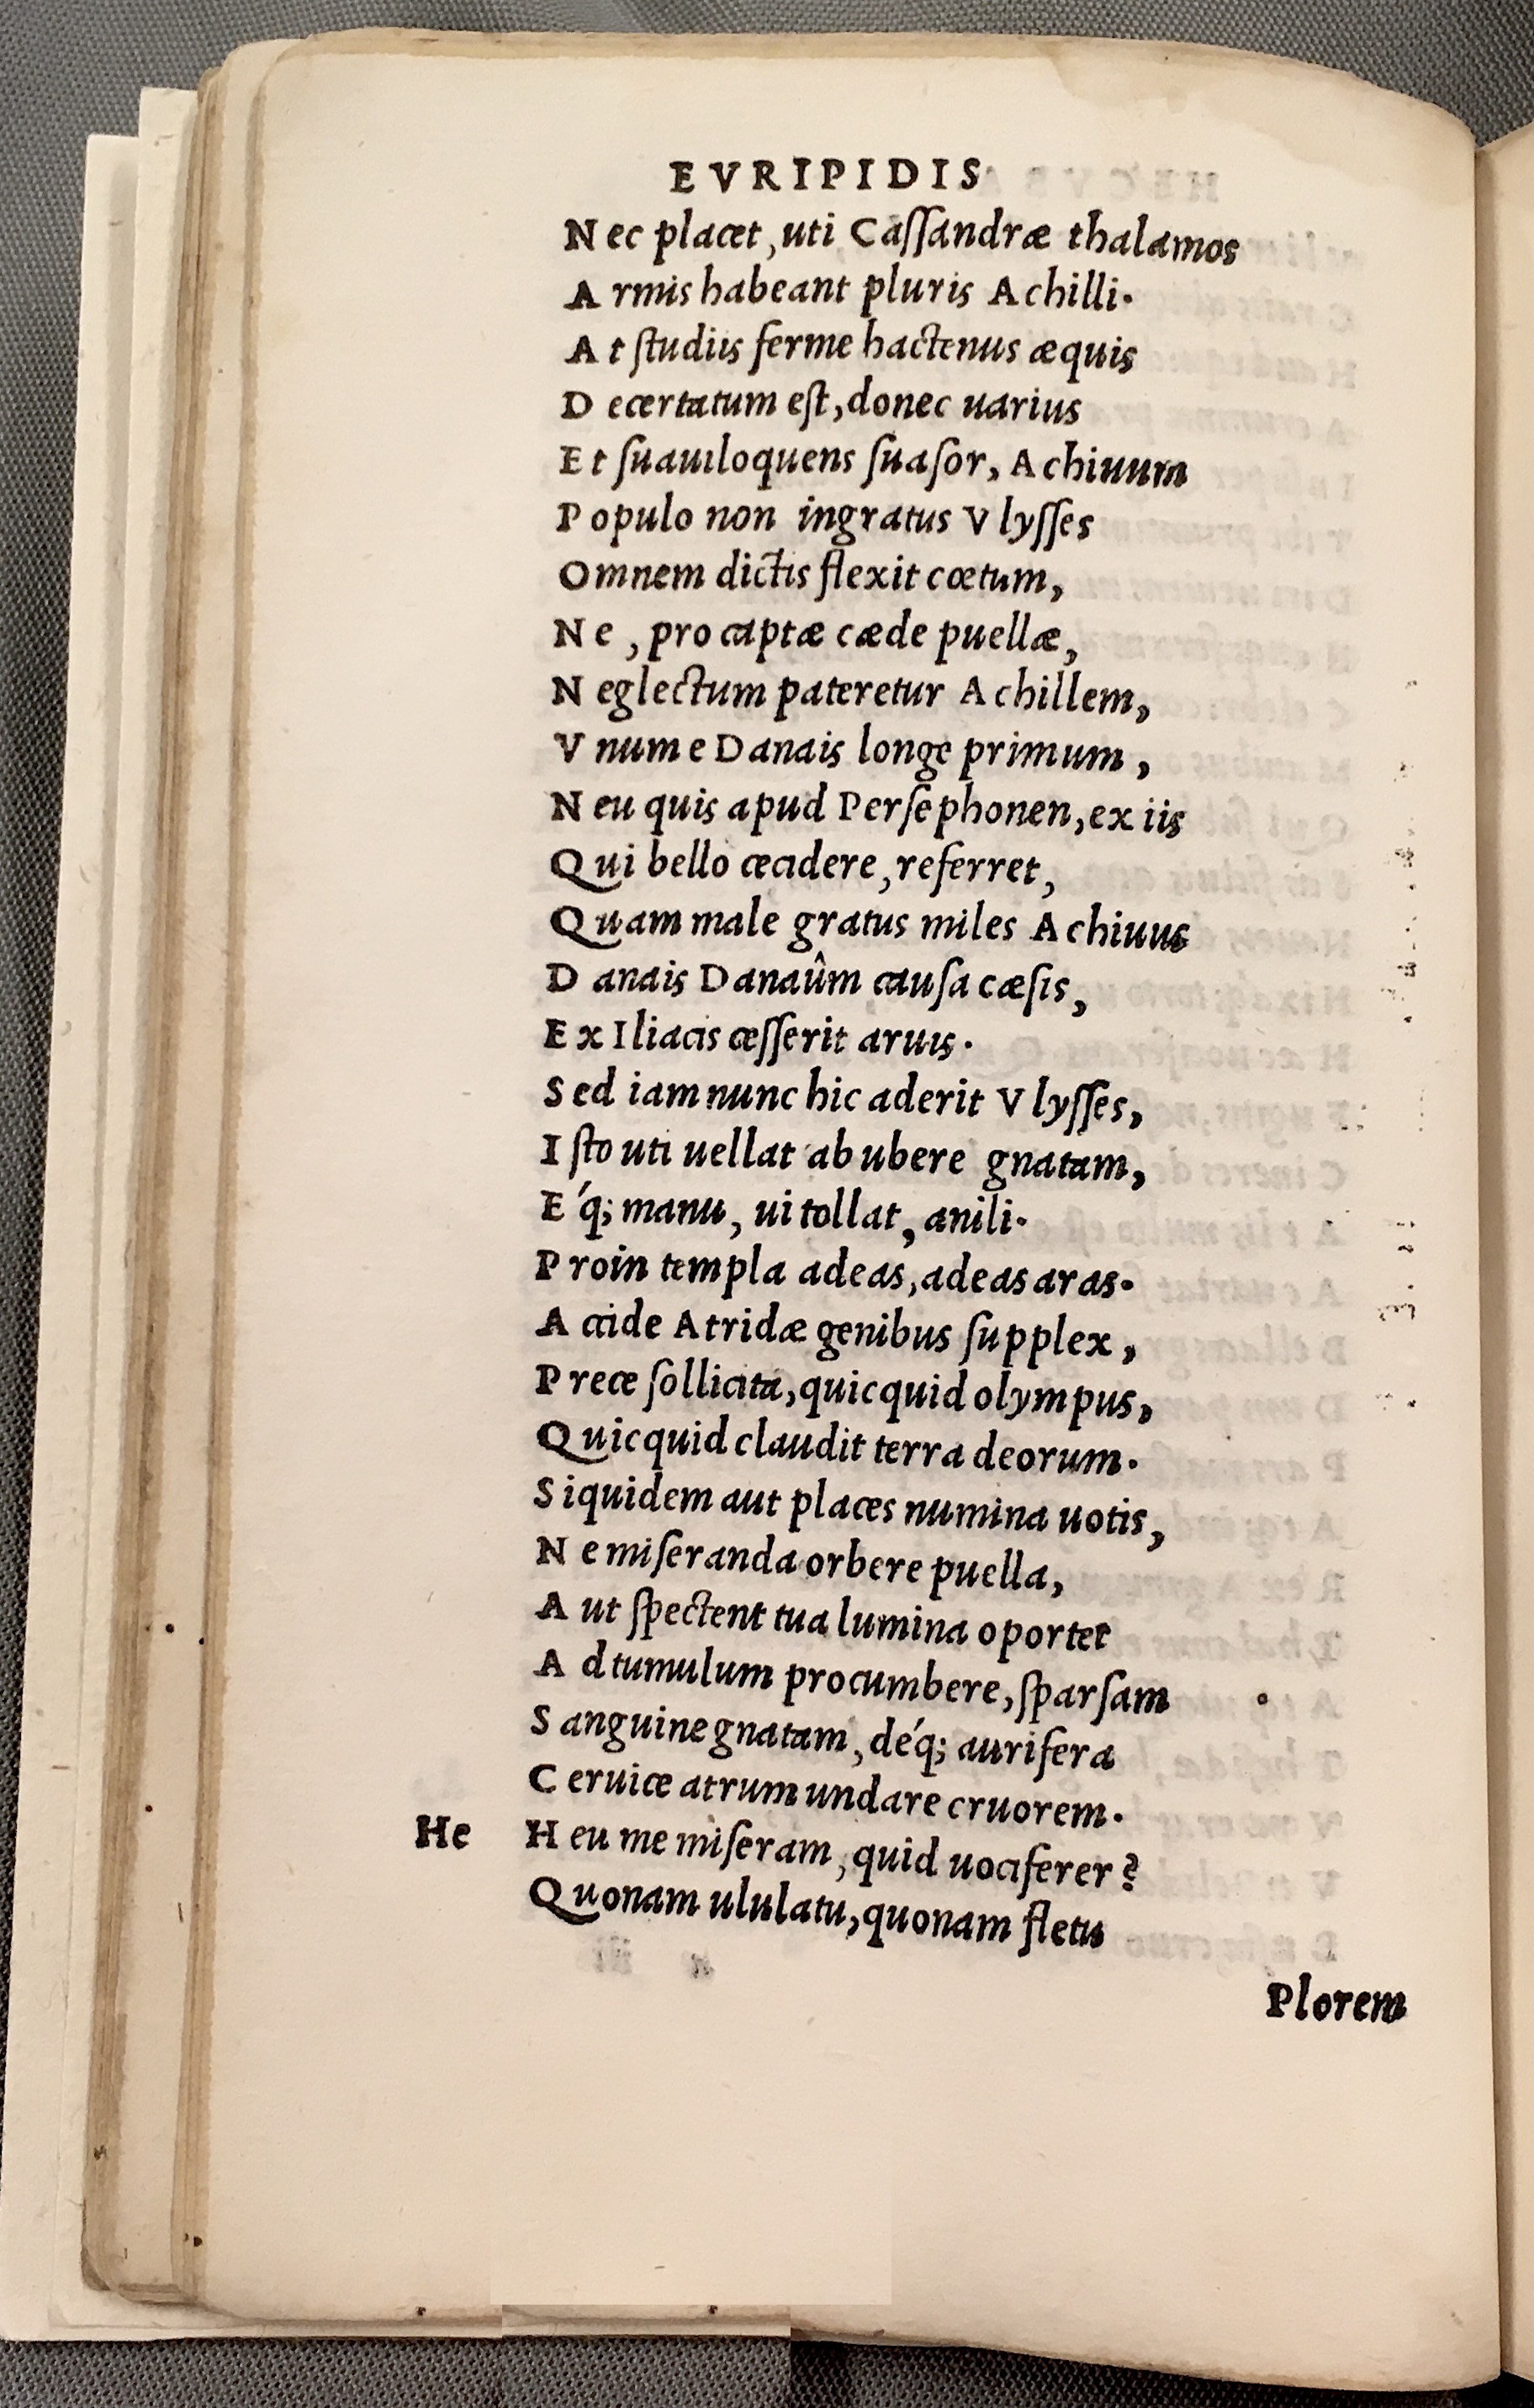 EVRIPIDIS
Nec placet, uti Cassandræ thalamos
Armis habeant pluris Achilli.
At studiis ferme hactenus æquis
Decertatum est, donec uarius
Et suauiloquens suasor, Achiuum
Populo non ingratus Vlysses
Omnem dictis flexit cœtum,
Ne, pro captæ cæde puellæ,
Neglectum pateretur Achillem,
Vnum e Danais longe primum,
Neu quis apud Persephonen, ex iis
Qui bello cecidere, referret,
Quam male gratus miles Achiuus
Danais Danaûm causa cæsis,
Ex Iliacis cesserit aruis.
Sed iam nunc hic aderit Vlysses,
Isto uti uellat ab ubere gnatam,
E´q; manu, ui tollat, anili.
Proin templa adeas, adeas aras.
Accide Atridæ genibus supplex,
Prece sollicita, quicquid olympus,
Quicquid claudit terra deorum.
Siquidem aut places numina uotis,
Ne miseranda orbere puella,
Aut spectent tua lumina oportet
Ad tumulum procumbere, sparsam
Sanguine gnatam, de´q; aurifera
Ceruice atrum undare cruorem.
He Heu me miseram, quid uociferer?
Quonam ululatu, quonam fletu
Plorem